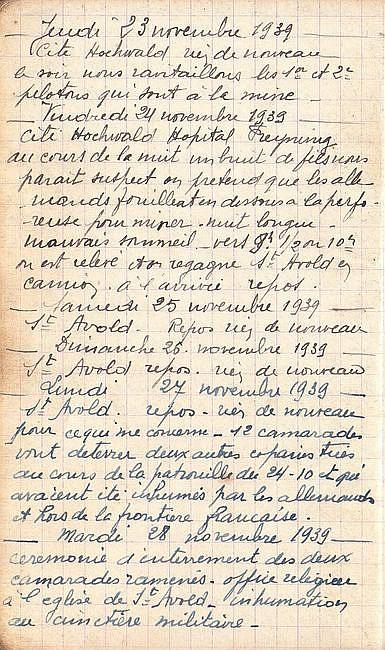 — Jeudi 23 novembre 1939
Cité Hochwald rien de nouveau
le soir nous ravitaillons les 1er et 2e
pelotons qui sont à la mine —
— Vendredi 24 novembre 1939 —
Cité Hochwald Hopital Freyming
au cours de la nuit un bruit de fils nous
parait suspect on prétend que les alle
mands fouillent en dessous a la perfo-
reuse pour miner. nuit longue.
mauvais sommeil. vers 9h 1/2 ou 10h
on est relevé et on regagne St Avold en
camion. à l'arrivée repos.
— Samedi 25 novembre 1939 —
St Avold. Repos rien de nouveau
— Dimanche 26 novembre 1939 —
St Avold repos. rien de nouveau
— Lundi 27 novembre 1939 —
St Avold. repos. rien de nouveau
pour ce qui me concerne. 12 camarades
vont deterrer deux autres copains tués
au cours de la patrouille du 24-10 et qui
avaient été inhumés par les allemands
et hors de la frontière française.
— Mardi 28 novembre 1939 —
ceremonie d'enterrement des deux
camarades ramenés. office religieux
à l'eglise de St Avold. inhumation
au cimetière militaire —